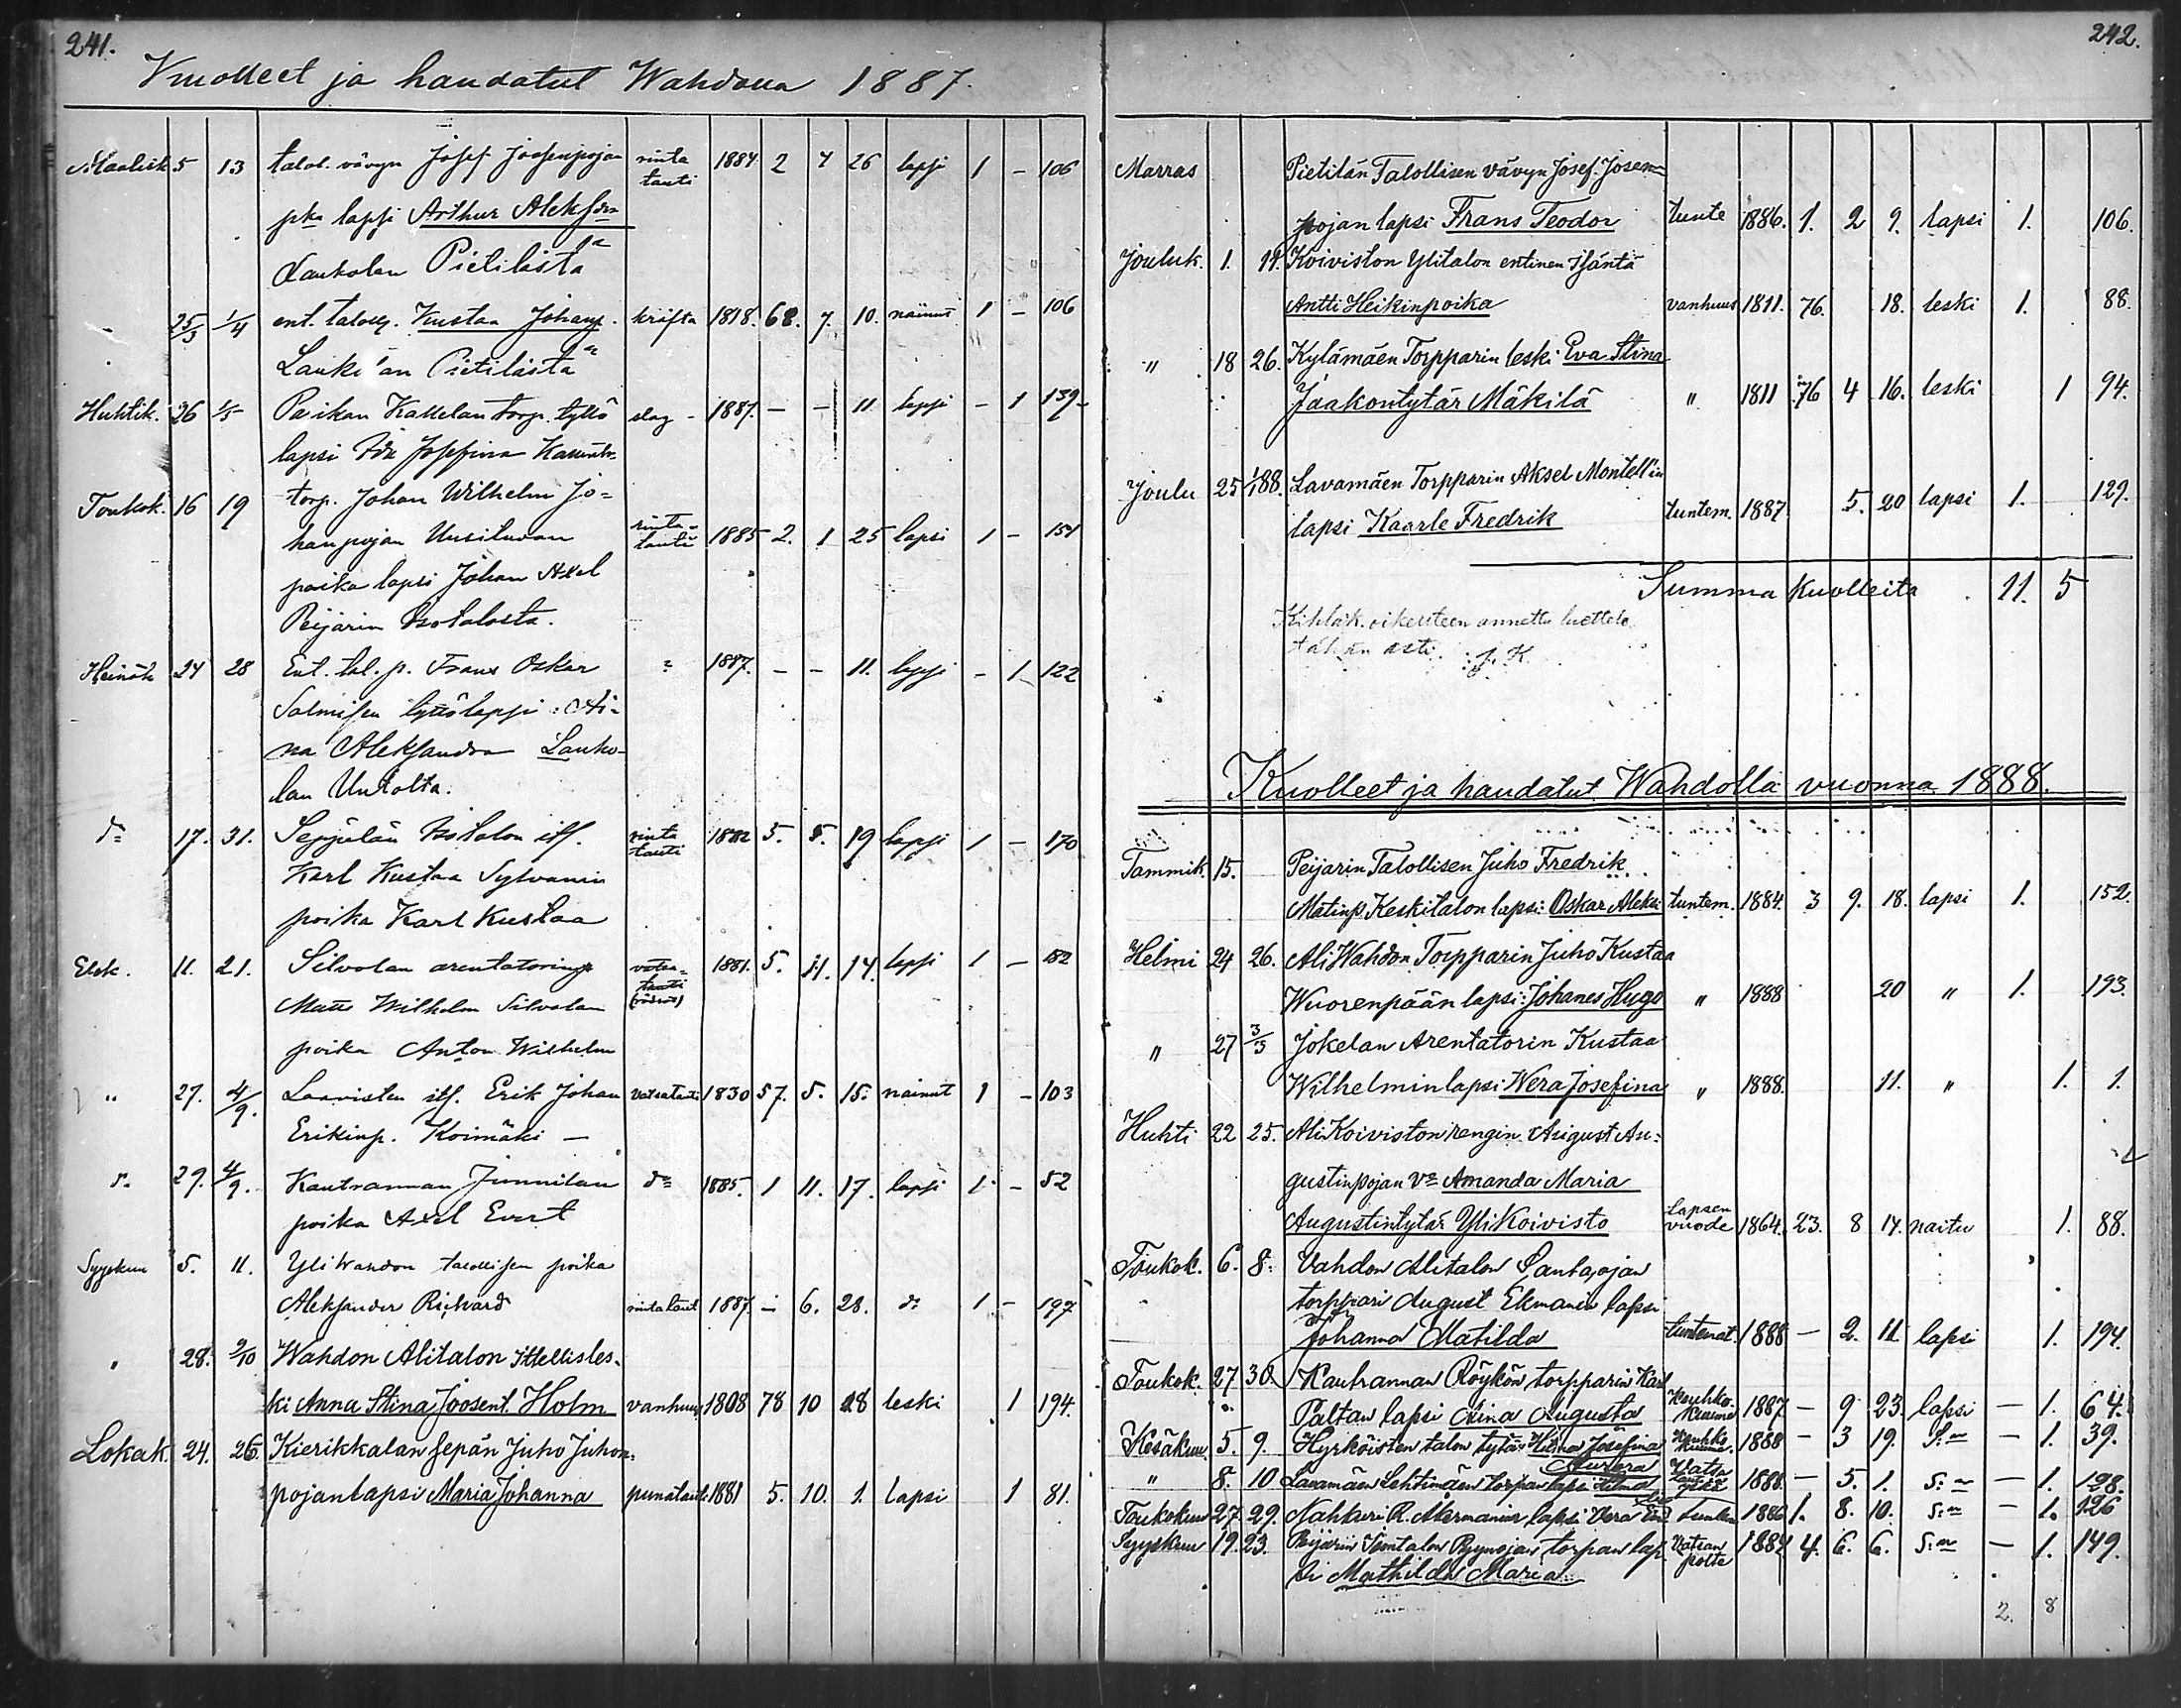 241.
Kuolleet ja haudatut Wahdolla 1887.
Maalisk. 5 13 talol. vävyn Josef Joosenpojan rinta tauti 1884. 2 7 26 lapsi 1 – 106
pka lapsi Arthur Aleksan
Laukolan Pietilästä
25/3 1/4 ent. talolls. Kustaa Johanp. krifta 1818. 68. 7. 10. nainut 1 – 106
Pietilästä
Huhtik. 26 1/5 Paikan Kattelan torp. tyttö slag – 1887. – – 11 lapsi – 1 139.
lapsi Ida Josefina
Toukok. 16 19 torp. Johan Wilhelm Jo=
hanpojan rinta-tauti 1885 2. 1 25 lapsi 1 – 151
poika lapsi Johan Axel
Peijarin Isotalosta.
Heinäk 24 28 Ent. tal. p. Frans Oskar " 1887. – – 11. lapsi – 1 122
Salmisen tyttölapsi: Ai=
na Aleksandra Lauko-
lan Untolta.
d:o 17. 31. Seppälän Isotalon its. rinta tauti 1882 5. 5. 19 lapsi 1 – 170
Karl Kustaa Sylvanin
poika Karl Kustaa
Elok. 11. 21. Silvolan arentatorin vatsa-tauti 1881. 5. 11. 14. lapsi 1 – 182
Matts Wilhelm Silvolan
poika Anton Wilhelm
" 27. 4/9. Laavisten its. Erik Johan vatsatauti 1830 57. 5. 15. nainut 1 – 103
Erikinp. Koimäki –
d:o 29. 4/9. Kautrannan Junnilan d:o 1885. 1 11. 17. lapsi 1 – 52
poika Axel Evert
Syyskuu 5. 11. YliWahdon talollisen poika
Aleksander Richard rintataut 1887. – 6. 28. d:o 1 – 197
" 28. 9/10 Wahdon Alitalon Itsellisles-
ki Anna Stina Joosent. Holm vanhuus 1808 78 10 28 leski 1 194.
Lokak. 24. 26 Kierikkalan sepän Juho Juhon-
pojanlapsi Maria Johanna punataut. 1881 5. 10. 1. lapsi 1 81.
242.
Marras Pietilän Talollisen vävyn Josef. Josem=
pojan lapsi Frans Teodor tunte 1886. 1. 2 9. lapsi 1. 106.
Jouluk. 1. 11. Koiviston Ylitalon entinen Isäntä
Antti Heikinpoika vanhuus 1811. 76. 18. leski 1. 88.
" 18 26. Kylämäen Torpparin leski Eva Stina
Jaakontytär Mäkilä " 1811 76 4 16. leski 1 94.
Joulu 25 1/1 88. Lavamäen Torpparin Aksel Montell'in
lapsi Kaarle Fredrik tuntem. 1887 5. 20 lapsi 1. 129.
Summa Kuolleita 11. 5
Kihlak. oikeuteen annettu luettelo
tähän asti. J. K.
Kuolleet ja haudatut Wahdolla vuonna 1888.
Tammik. 15. Peijarin Talollisen Juho Fredrik
Matinp. Keskitalon lapsi: Oskar Aleksi tuntem. 1884. 3 9. 18. lapsi 1. 152.
Helmi 24 26. AliWahdon Torpparin Juho Kustaa
Wuorenpään lapsi: Johanes Hugo " 1888 20 " 1. 193.
" 27 3/3 Jokelan Arentatorin Kustaa
Wilhelmin lapsi Wera Josefina " 1888. 11. " 1. 1.
Huhti 22 25. AliKoiviston rengin August Au=
gustinpojan v:o Amanda Maria
Augustintytär YliKoivisto Lapsen vuode 1864. 23. 8 14. naitu 1. 88.
Toukok. 6. 8. Vahdon Alitalon Santaojan
torppari August Ekmanin lapsi
Johanna Matilda tuntemat. 1888 – 2. 11. lapsi 1. 194.
Toukok. 27 30. Kautrannan Röykön torpparin Karl
Paltan lapsi Aina Augusta Keuhko-kuume 1887 – 9 23. lapsi – 1. 64.
Kesäkuu 5. 9. Hyrköisten talon tytär Hilma Josefina Keuhko kuume. 1888 – 3 19. S:n – 1. 39.
Aurora
" 8. 10 Lavamäen Lehtimäen torpan lapsi Hilma Vatsa 1888. – 5. 1. S:n – 1. 128.
Toukokuu 27. 29. Nahkuri R. Akermanin lapsi Vera 1886 1. 8. 10. S:n – 1. 126
Syyskuu 19. 23. Peijarin torpan lap- Vatsan polte 1884 4. 6. 6. S:n – 1. 149.
si Mathilda Maria
2. 8